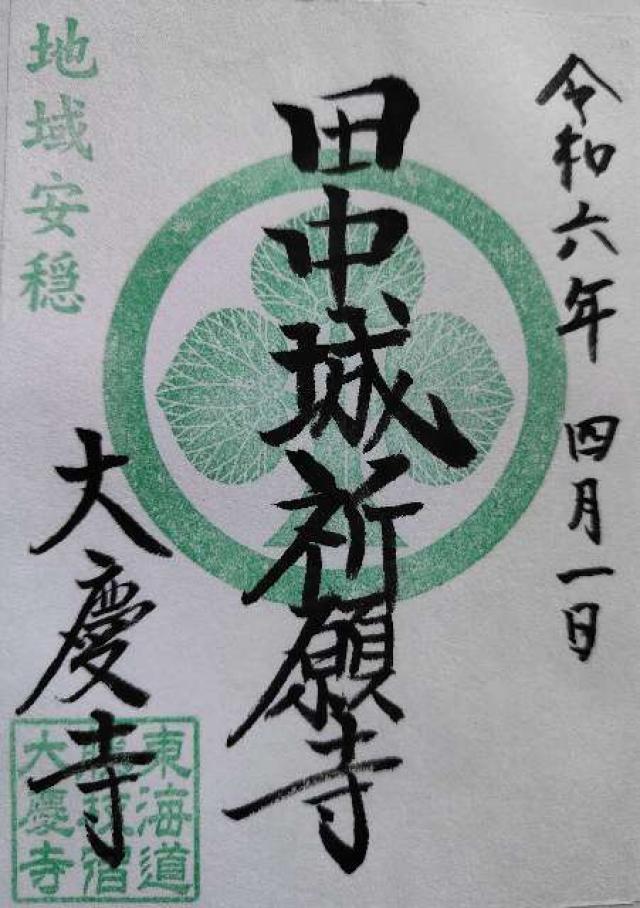 令和六年 四月一日
田中城祈願寺
地域安穏
大慶寺
東海道
藤枝宿
大慶寺